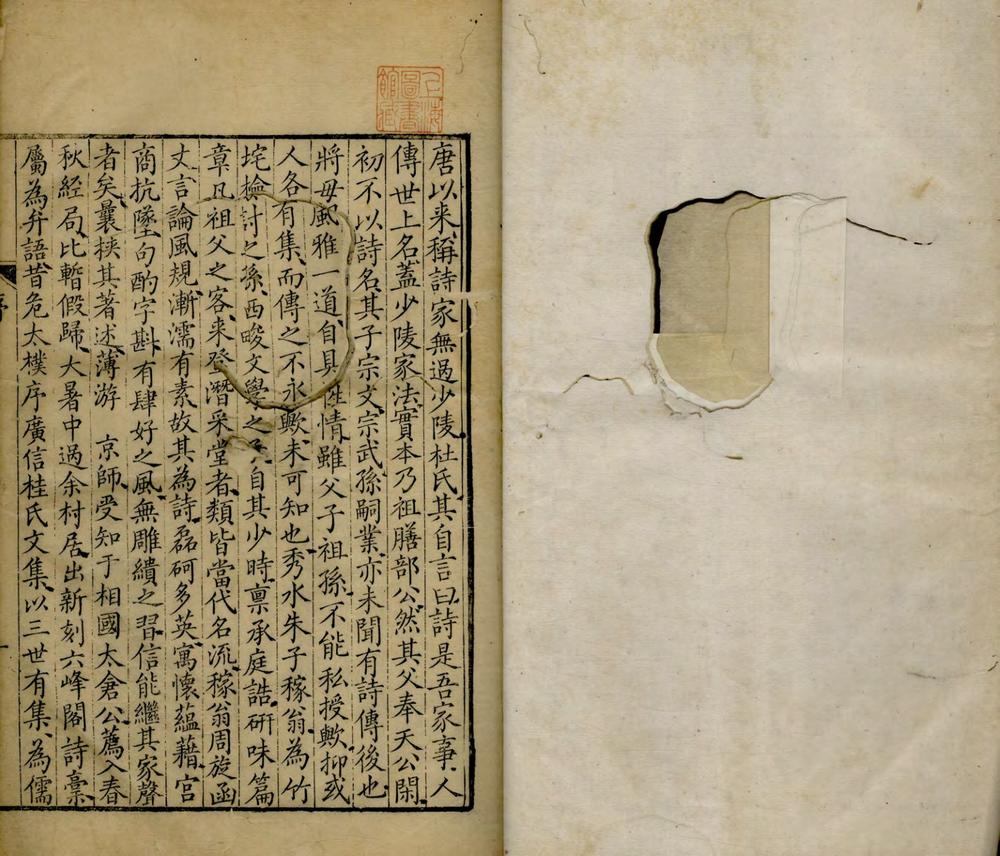 上海圖書館藏
唐以来稱詩家無過少陵杜氏其自言曰詩是吾家事人
傳世上名蓋少陵家法實本乃祖膳部公然其父奉天公閑
初不以詩名其子宗文宗武孫嗣業亦未聞有詩傳後也
將毋風雅一道自具性情雖父子祖孫不能私授歟抑或
人各有集而傳之不永歟未可知也秀水朱子稼翁為竹
垞檢討之孫西畯文學之子自其少時禀承庭誥研味篇
章凡祖父之客来登潛采堂者類皆當代名流稼翁周旋函
丈言論風規漸濡有素故其為詩磊砢多英寓懷蘊藉宫
商抗墜句酌字斟有肆好之風無雕繢之習信能繼其家聲
者矣曩挾其著述薄游 京師受知于相國太倉公薦入春
秋經局比暫假歸大暑中過余村居出新刻六峰閣詩稾
屬為弁語昔危太樸序廣信桂氏文集以三世有集為儒
序